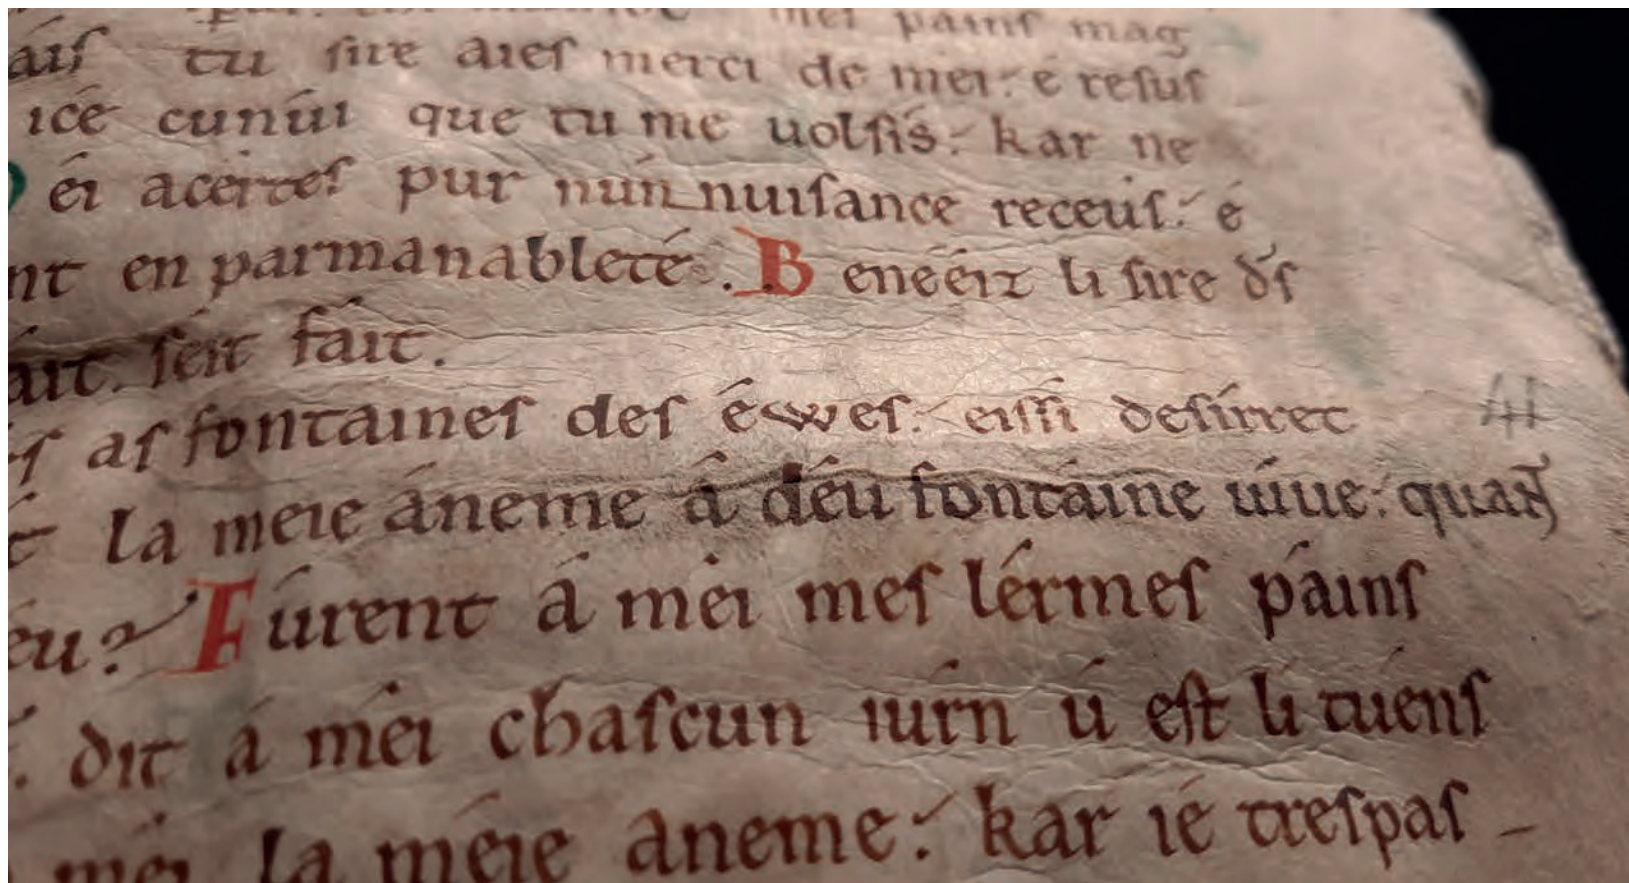 mei painſ mag
aiſ tu ſire aieſ merci de mei: e reſuſ
icé cunúi que tu me uolſiſ: kar ne
éi acerteſ pur nún nuiſance receuiſ: é
nt en parmanableté. Benéeit li ſire dſ̄
ait. ſeit fáit.
ſ aſ fontaineſ deſ éweſ: eiſſi deſirret 41
la meie áneme á déu fontáine uiue: quant
eu? Fúrent á méi meſ lérmeſ páinſ
dit á méi chaſcun iurn ú eſt li tuenſ
méi la méie aneme: kar ié treſpaſ-